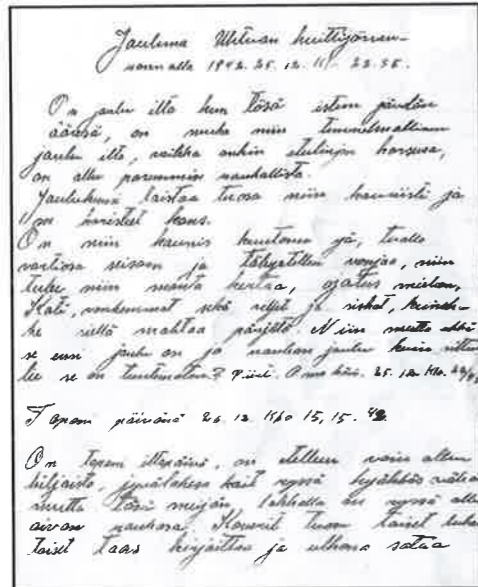 Jouluna Uhtuan
vuonna 1942. 25. 12. Klo. 22.55.
On joulu ilta kun tösä istun pöydän
ääresä, on muka niin tunnelmallinen
joulu ilta, vaikka onkin etulinjan korsusa,
on ollu paremmin rauhallista.
Joulukuusi loistaa tuosa niin kauniisti ja
on koristeet kans.
On niin kaunis kuutamo yö, tuolla
vartiosa seisoin ja tähystellen venjaa, niin
tulee niin monta kertaa, ajatus mielen,
Koti, vanhemmat sekä veljet ja siskot, kuinka-
he siellä mahtaa pärjätä. Niin mutta ehkä
se ensi joulu on jo rauhan joulu kuin sitten
lie se on tuntematon? 25. 12. Klo.
Tapani päivänä 26. 12. Klo 15,15. 42
On tapani iltapäivä, on otellen vain ollen
hiljaista, kait ryssä hyökkää
mutta tösä meijän lohkolla on ryssä ollu
aivan rauhasa. Kaverit tuosa toiset lukee
toiset taas kirjoittaa ja ulkona sataa